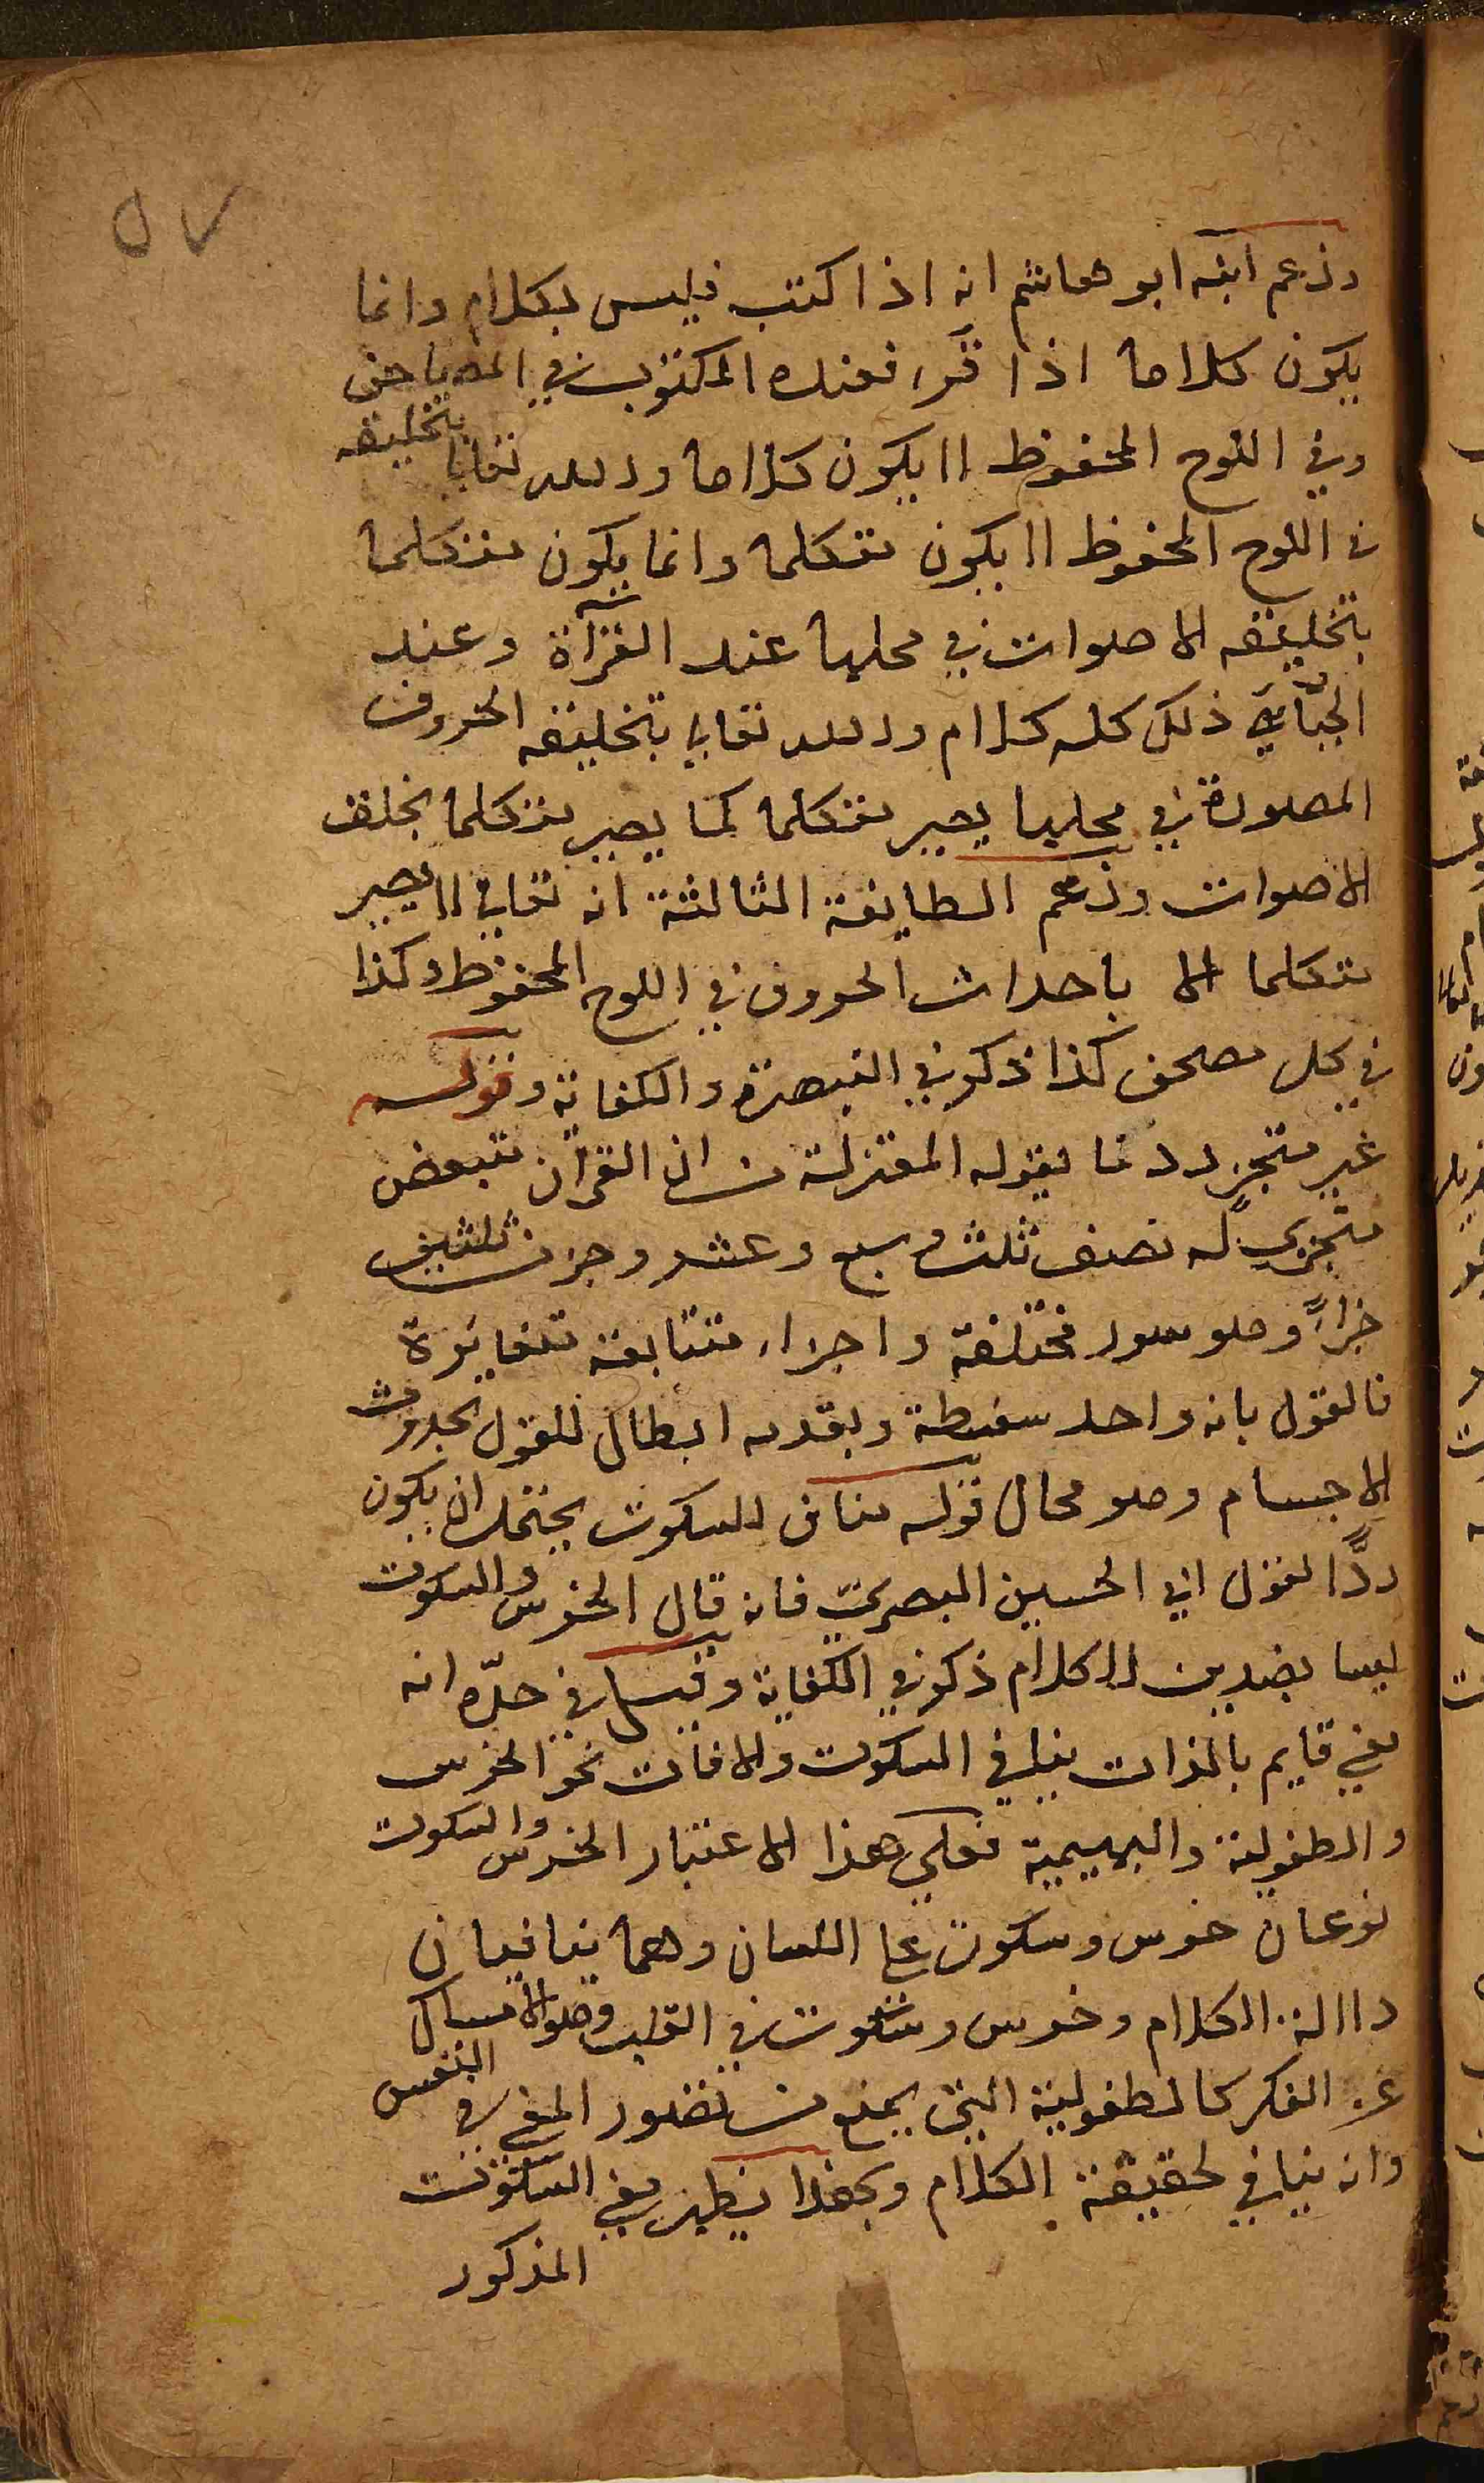 ٥٧
وزعم ابنه ابو هاشم انه اذا كتب فليس بكلام وانما
يكون كلاما اذا قرء فعنده المكتوب في المصاحف
وفي اللوح المحفوظ لا يكون كلاما والله تعالى بتخليقه
في اللوح المحفوظ لا يكون متكلما وانما يكون متكلما
بتخليقه الاصوات في محلها عند القرآة وعند
الجبّائي ذلك كله كلام والله تعالى بتخليقه الحروف
المصورة في محلها يصير متكلما كما يصير متكلما بخلق
الاصوات وزعم الطايفة الثالثة انه تعالى لا يصير
متكلما الا باحداث الحروف في اللوح المحفوظ وكذا
في كل مصحف كذا ذكر في التبصرة والكفاية وقوله
غير متجز رد لما يقوله المعتزلة من ان القرآن متبعض
متجزي له نصف ثلث وسبع وعشر وجزء من ثلثين
جزاءً وهو سور مختلفة واجزاء متتابعة متغايرة
فالقول بانه واحد سفسطة وبقدمه ابطال للقول بحدوث
الاجسام وهو محال قوله مناف للسكوت يحتمل ان يكون
ردًّا لقول ابي الحسين البصري فانه قال الخرس والسكوت
ليسا بضدين للكلام ذكر في الكفاية وقيل في حدّه انه
معنى قايم بالذات ينافي السكوت والافات نحو الخرس
والطفولية والبهيمية فعلى هذا الاعتبار الخرس والسكوت
نوعان خرس وسكوت على اللسان وهما ينافيان
دلالة الكلام وخرس وسكوت في القلب وهو الامساك
عن الفكر كالطفولية التي يمنع من تصور المعنى في النفس
وانه ينافي لحقيقة الكلام وبهذا يظهر معنى السكوت
المذكور